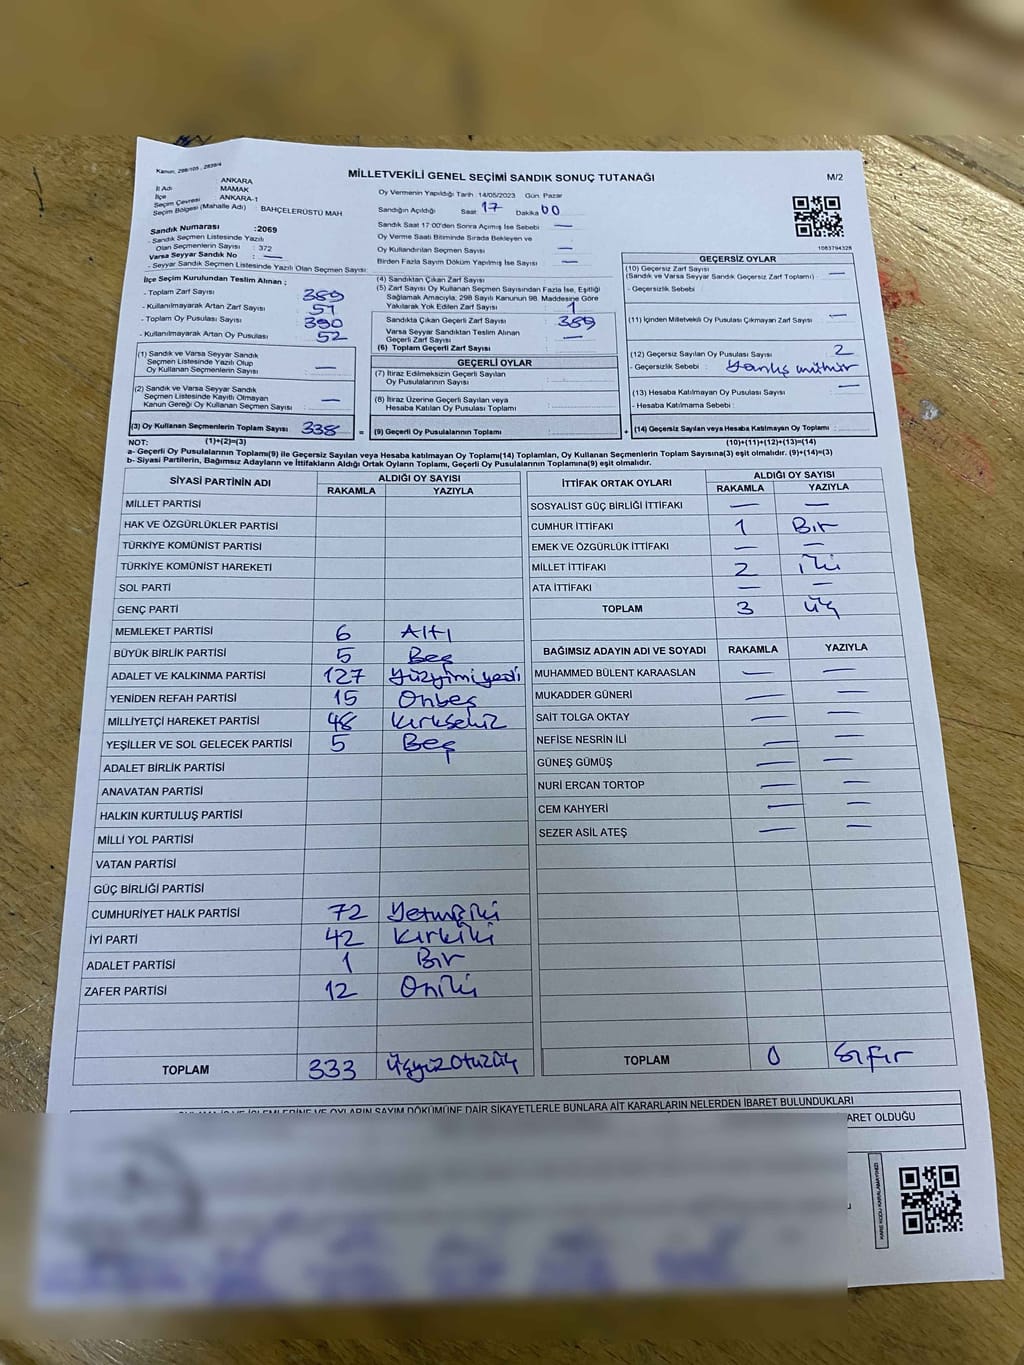 Kanun, 298/105 , 2839/4
MİLLETVEKİLİ GENEL SEÇİMİ SANDIK SONUÇ TUTANAĞI
M/2
İl Adı : ANKARA
İlçe : MAMAK
Seçim Çevresi : ANKARA-1
Seçim Bölgesi (Mahalle Adı) : BAHÇELERÜSTÜ MAH
Oy Vermenin Yapıldığı Tarih : 14/05/2023 Gün: Pazar
Sandığın Açıldığı Saat 17 Dakika 00
Sandık Saat 17:00'den Sonra Açımış İse Sebebi —
Oy Verme Saati Bitiminde Sırada Bekleyen ve
Oy Kullandırılan Seçmen Sayısı —
Birden Fazla Sayım Döküm Yapılmış İse Sayısı —
1083794328
Sandık Numarası :2069
- Sandık Seçmen Listesinde Yazılı
Olan Seçmenlerin Sayısı : 372
Varsa Seyyar Sandık No : —
- Seyyar Sandık Seçmen Listesinde Yazılı Olan Seçmen Sayısı :
İlçe Seçim Kurulundan Teslim Alınan ;
- Toplam Zarf Sayısı 389
- Kullanılmayarak Artan Zarf Sayısı 51
- Toplam Oy Pusulası Sayısı 390
- Kullanılmayarak Artan Oy Pusulası 52
(1) Sandık ve Varsa Seyyar Sandık
Seçmen Listesinde Yazılı Olup
Oy Kullanan Seçmenlerin Sayısı —
(2) Sandık ve Varsa Seyyar Sandık
Seçmen Listesinde Kayıtlı Olmayan
Kanun Gereği Oy Kullanan Seçmen Sayısı —
(3) Oy Kullanan Seçmenlerin Toplam Sayısı 338
(4) Sandıktan Çıkan Zarf Sayısı
(5) Zarf Sayısı Oy Kullanan Seçmen Sayısından Fazla İse, Eşitliği
Sağlamak Amacıyla; 298 Sayılı Kanunun 98. Maddesine Göre
Yakılarak Yok Edilen Zarf Sayısı 1
Sandıkta Çıkan Geçerli Zarf Sayısı 389
Varsa Seyyar Sandıktan Teslim Alınan
Geçerli Zarf Sayısı —
(6) Toplam Geçerli Zarf Sayısı
GEÇERLİ OYLAR
(7) İtiraz Edilmeksizin Geçerli Sayılan
Oy Pusulalarının Sayısı
(8) İtiraz Üzerine Geçerli Sayılan veya
Hesaba Katılan Oy Pusulası Toplamı
= (9) Geçerli Oy Pusulalarının Toplamı
GEÇERSİZ OYLAR
(10) Geçersiz Zarf Sayısı
(Sandık ve Varsa Seyyar Sandık Geçersiz Zarf Toplamı) —
- Geçersizlik Sebebi :
(11) İçinden Milletvekili Oy Pusulası Çıkmayan Zarf Sayısı —
(12) Geçersiz Sayılan Oy Pusulası Sayısı 2
- Geçersizlik Sebebi : Yanlış mühür
(13) Hesaba Katılmayan Oy Pusulası Sayısı —
- Hesaba Katılmama Sebebi :
+ (14) Geçersiz Sayılan veya Hesaba Katılmayan Oy Toplamı
NOT: (1)+(2)=(3) (10)+(11)+(12)+(13)=(14)
a- Geçerli Oy Pusulalarının Toplamı(9) ile Geçersiz Sayılan veya Hesaba katılmayan Oy Toplamı(14) Toplamları, Oy Kullanan Seçmenlerin Toplam Sayısına(3) eşit olmalıdır. (9)+(14)=(3)
b- Siyasi Partilerin, Bağımsız Adayların ve İttifakların Aldığı Ortak Oyların Toplamı, Geçerli Oy Pusulalarının Toplamına(9) eşit olmalıdır.
SİYASİ PARTİNİN ADI ALDIĞI OY SAYISI
RAKAMLA YAZIYLA
MİLLET PARTİSİ
HAK VE ÖZGÜRLÜKLER PARTİSİ
TÜRKİYE KOMÜNİST PARTİSİ
TÜRKİYE KOMÜNİST HAREKETİ
SOL PARTİ
GENÇ PARTİ
MEMLEKET PARTİSİ 6 Altı
BÜYÜK BİRLİK PARTİSİ 5 Beş
ADALET VE KALKINMA PARTİSİ 127 Yüzyirmiyedi
YENİDEN REFAH PARTİSİ 15 Onbeş
MİLLİYETÇİ HAREKET PARTİSİ 48 Kırksekiz
YEŞİLLER VE SOL GELECEK PARTİSİ 5 Beş
ADALET BİRLİK PARTİSİ
ANAVATAN PARTİSİ
HALKIN KURTULUŞ PARTİSİ
MİLLİ YOL PARTİSİ
VATAN PARTİSİ
GÜÇ BİRLİĞİ PARTİSİ
CUMHURİYET HALK PARTİSİ 72 Yetmişiki
İYİ PARTİ 42 Kırkiki
ADALET PARTİSİ 1 Bir
ZAFER PARTİSİ 12 Oniki
TOPLAM 333 Üçyüzotuzüç
İTTİFAK ORTAK OYLARI ALDIĞI OY SAYISI
RAKAMLA YAZIYLA
SOSYALİST GÜÇ BİRLİĞİ İTTİFAKI — —
CUMHUR İTTİFAKI 1 Bir
EMEK VE ÖZGÜRLÜK İTTİFAKI — —
MİLLET İTTİFAKI 2 iki
ATA İTTİFAKI — —
TOPLAM 3 üç
BAĞIMSIZ ADAYIN ADI VE SOYADI RAKAMLA YAZIYLA
MUHAMMED BÜLENT KARAASLAN — —
MUKADDER GÜNERİ — —
SAİT TOLGA OKTAY — —
NEFİSE NESRİN İLİ — —
GÜNEŞ GÜMÜŞ — —
NURİ ERCAN TORTOP — —
CEM KAHYERİ — —
SEZER ASİL ATEŞ — —
TOPLAM 0 Sıfır
İŞLEMLERİNE VE OYLARIN SAYIM DÖKÜMÜNE DAİR ŞİKAYETLERLE BUNLARA AİT KARARLARIN NELERDEN İBARET BULUNDUKLARI
ARET OLDUĞU
KARE KODU KARALAMAYINIZ!